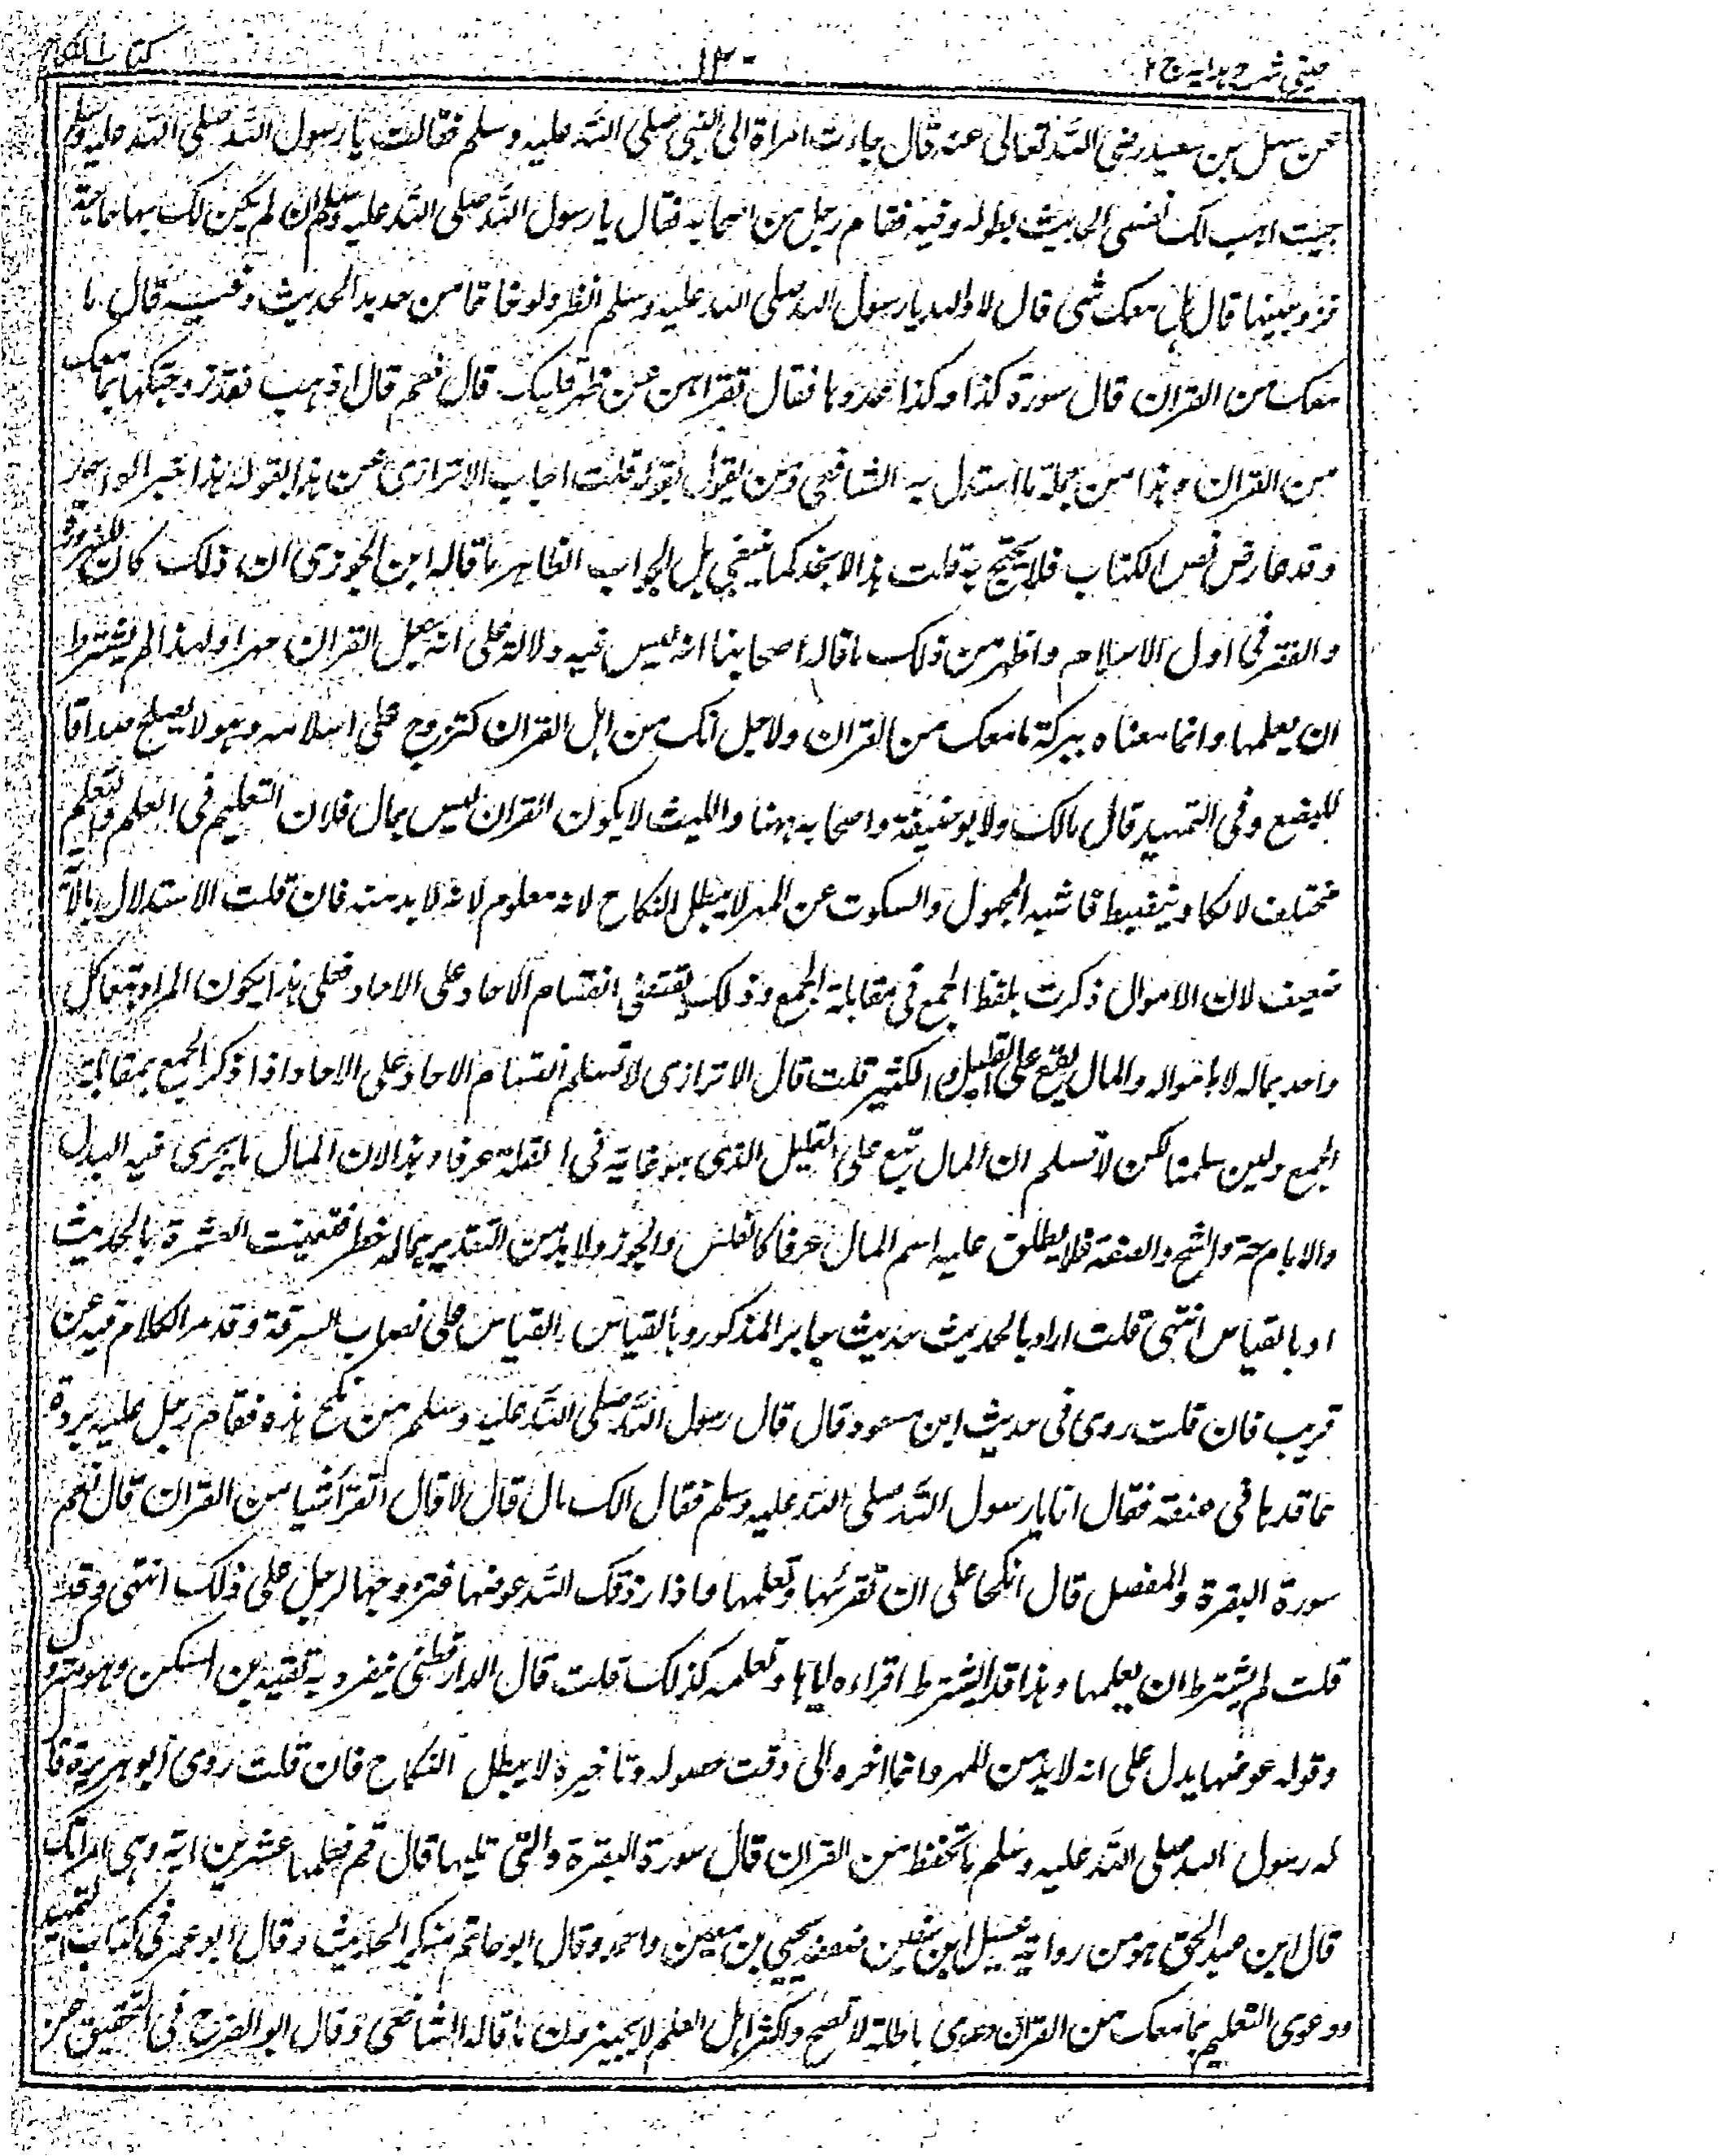 عینی شرح ہدایہ ج ٢
١٣٠
كتاب النكاح
عن سهل بن سعيد رضى الله تعالى عنه قال جاءت امراة الى النبى صلى الله عليه وسلم فقالت يا رسول الله صلى الله عليه وسلم
جيئت اهب لك نفسى الحديث بطوله وفيه فقام رجل من اصحابه فقال يا رسول الله صلى الله عليه وسلم ان لم يكن لك بها حاجة
فزوجنيها قال هل معك شى قال لا والله يا رسول الله صلى الله عليه وسلم انظر ولو خاتما من حديد الحديث وفيه قال ما
معك من القران قال سورة كذا وكذا عددها فقال تقراهن عن ظهر قلبك قال نعم قال اذهب فقد زوجتكها بما معك
من القران وهذا من جملة ما استدل به الشافعى ومن يقول بقوله قلت اجاب الاترازى عن هذا بقوله هذا خبر الواحد
وقد عارض نص الكتاب فلا يحتج به قلت هذا لا يجد كما ينبغى بل الجواب الظاهر ما قاله ابن الجوزى ان ذلك كان للضرورة
والفقر فى اول الاسلام واظهر من ذلك ما قاله اصحابنا انه ليس فيه دلالة على انه جعل القران مهرا ولهذا لم يشترط
ان يعلمها وانما معناه ببركة ما معك من القران ولاجل انك من اهل القران كتزوج على اسلامه وهو لا يصلح صداقا
للبضع وفى التمهيد قال مالك ولابو حنيفة واصحابه هنا والليث لا يكون القران ليس بمال فلان التعليم فى العلم والتعلم
مختلف لا يكاد ينضبط فاشبه المجهول والسكوت عن المهر لا يبطل النكاح لانه معلوم لانه لا بد منه فان قلت الاستدلال بالآية
ضعيف لان الاموال ذكرت بلفظ الجمع فى مقابلة الجمع وذلك يقتضى انقسام الاحاد على الاحاد فعلى هذا يكون المراد بتعاكل
واحد بماله لا باموال والمال يقع على القليل والكثير قلت قال الاترازى لا نسلم انقسام الاحاد على الاحاد اذا ذكر الجمع بمقابلة
الجمع ولين سلمنا لكن لا نسلم ان المال يقع على القليل الذى هو غاية فى القلة عرفا وهذا لان المال ما يجرى فيه البدل
والاباحة والشح والضنة فلا يطلق عليه اسم المال عرفا كالفلس والجوز ولا بد من التقدير بماله خطر فتعينت العشرة بالحديث
او بالقياس انتهى قلت اراد بالحديث حديث جابر المذكور وبالقياس القياس على نصاب السرقة وقد مر الكلام فيه عن
قريب فان قلت روى فى حديث ابن مسعود قال قال رسول الله صلى الله عليه وسلم من نكح هذه فقام رجل عليه بردة
عاقدها فى عنقه فقال انا يا رسول الله صلى الله عليه وسلم فقال الك مال قال لا قال اتقرأ شيا من القران قال نعم
سورة البقرة والمفصل قال انكحا على ان تقرئها وتعلمها واذا رزقك الله عوضها فتزوجها الرجل على ذلك انتهى وقد
قلت لم يشترط ان يعلمها وهذا قد اشترط اقراءه اياها وتعلمه كذلك قلت قال الدارقطنى ينفرد به عتبة بن السكن وهو متروك
وقوله عوضها يدل على انه لا بد من المهر وانما اخره الى وقت حصوله وتاخيره لا يبطل النكاح فان قلت روى ابو هريرة قال
له رسول الله صلى الله عليه وسلم ما تحفظ من القران قال سورة البقرة والتى تليها قال قم فعلمها عشرين اية وهى امراتك
قال ابن عبد الحق هو من رواية عسل ابن سفين ضعفه يحيى بن معين واحمد وقال ابو حاتم منكر الحديث وقال ابو عمر فى كتاب التمهيد
ودعوى التعليم بما معك من القران دعوى باطلة لا تصح واكثر اهل العلم لا يجيزون ما قاله الشافعى وقال ابو الفرج فى التحقيق